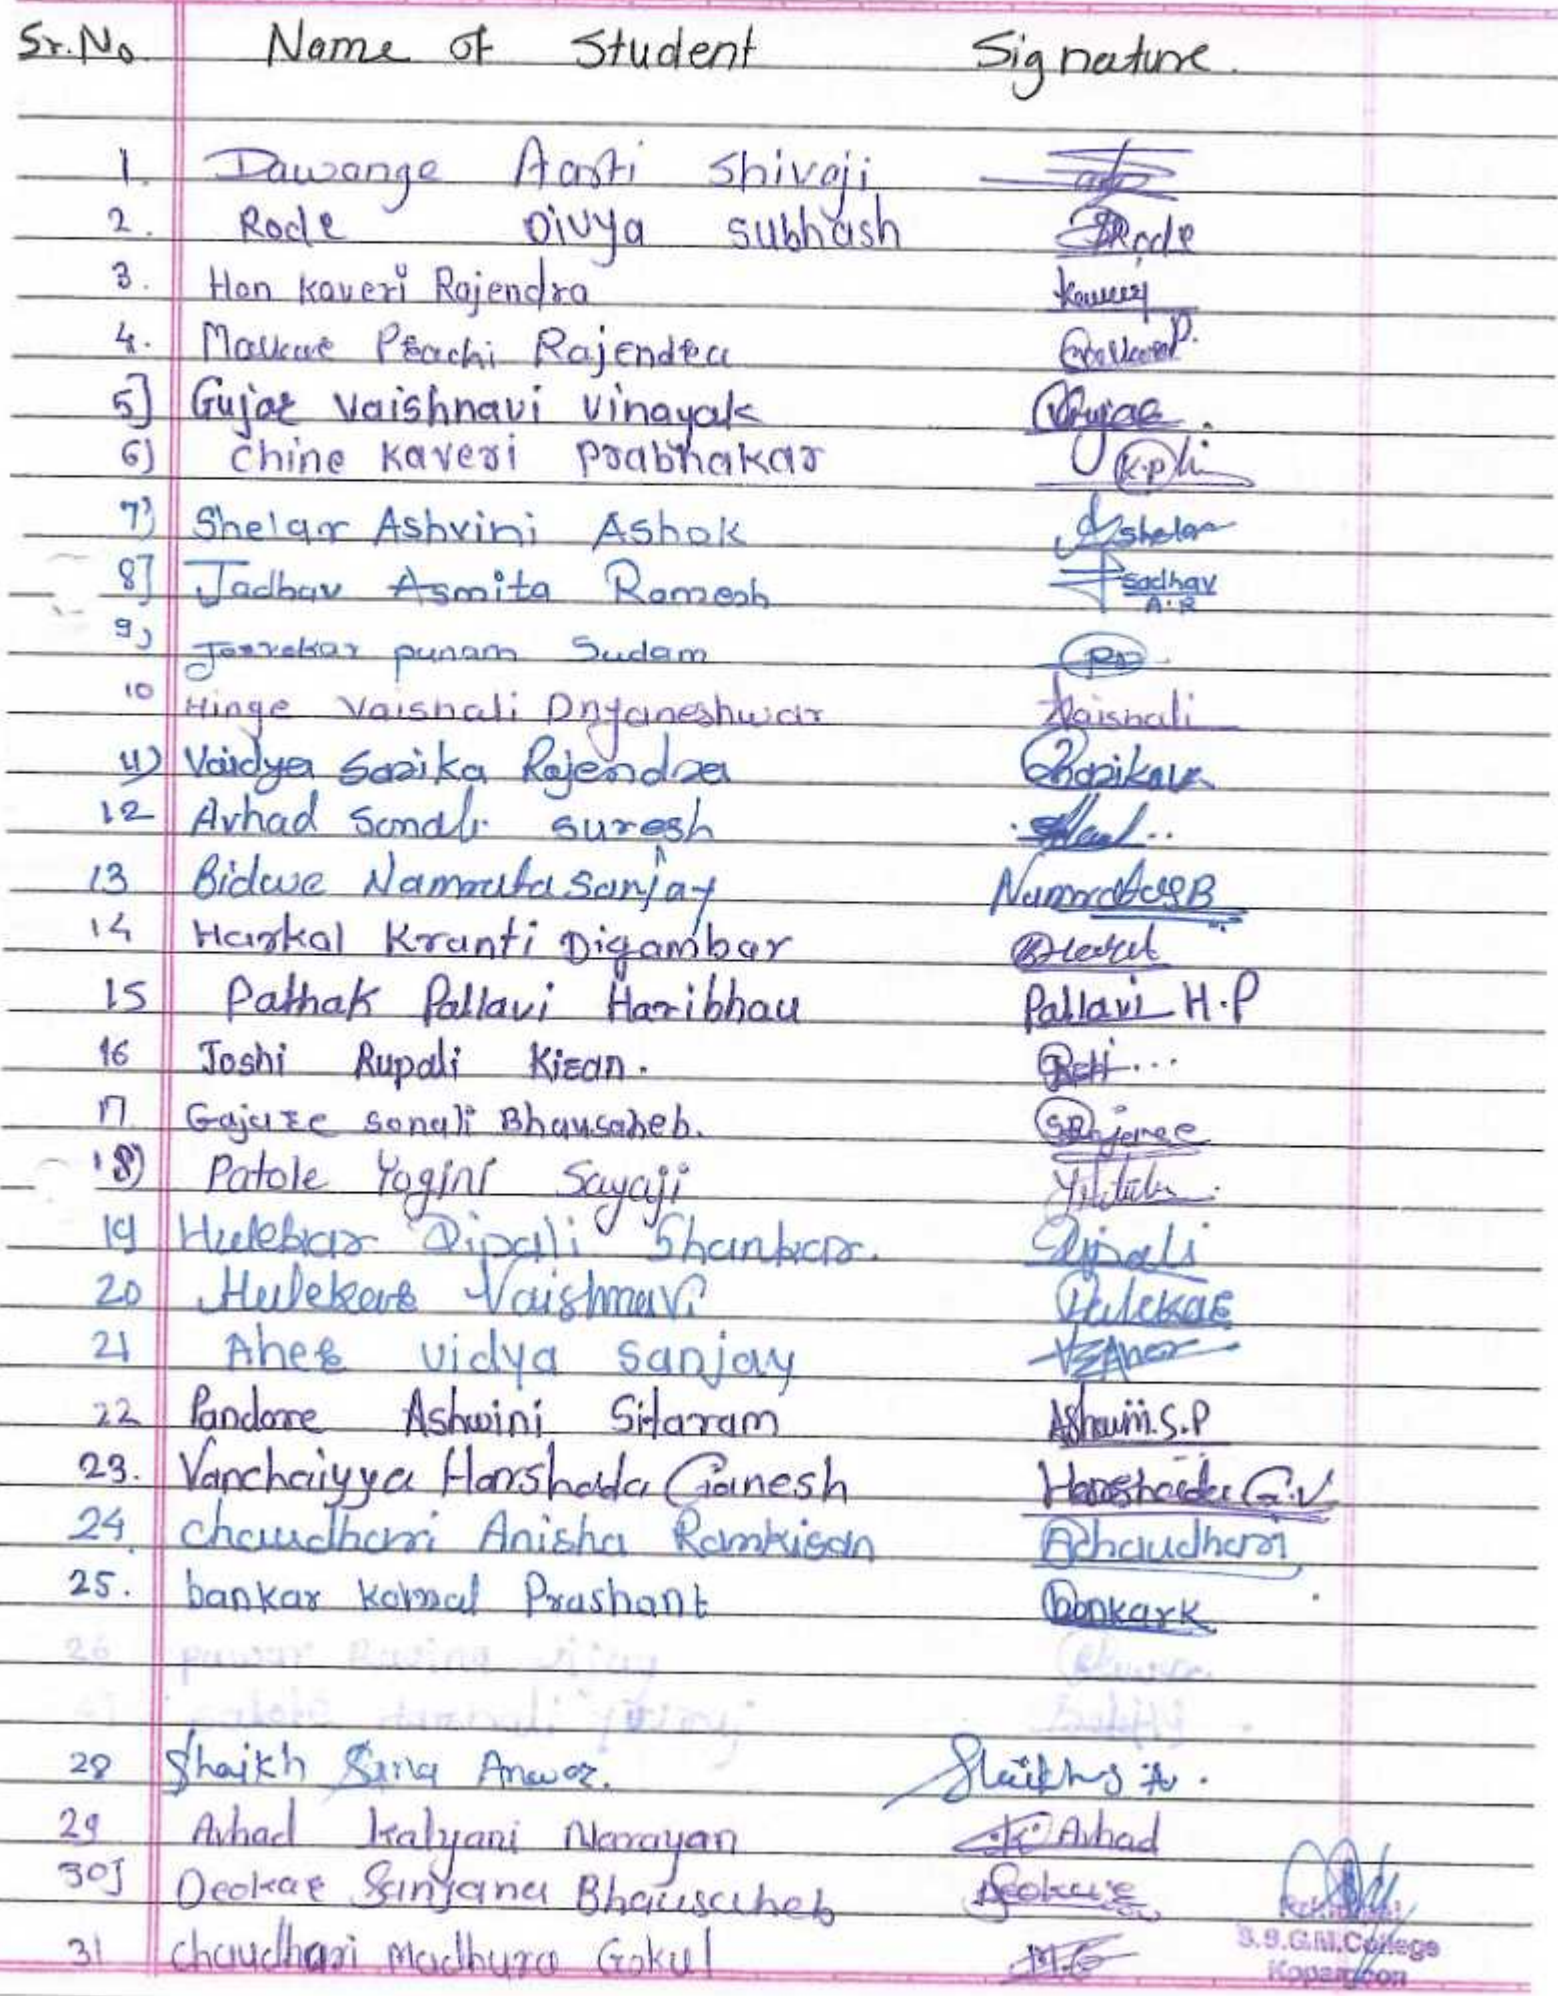 Sr.No Name of Student Signature.
1. Dawange Aarti Shivaji
2. Rode Divya Subhash Rode
3. Hon Kaveri Rajendra Kaveri
4. Prachi Rajendra P.
5] Gujar Vaishnavi Vinayak Gujar.
6) Chine Kaveri Prabhakar K.P
7) Shelar Ashvini Ashok Shelar
8] Jadhav Asmita Ramesh Jadhav A.R
9) punam Sudam
10 Hinge Vaishali Dnyaneshwar Vaishali
11) Vaidya Sarika Rajendra
12 Avhad Sonali Suresh
13 Bidwe Namrata Sanjay
14 Harkal Kranti Digambar
15 Pathak Pallavi Haribhau Pallavi H.P
16 Joshi Rupali Kisan.
17 Gajare Sonali Bhausaheb.
18) Patole Yogini Sayaji
19 Hulekar Dipali Shankar. Dipali
20 Hulekar Vaishnavi Hulekar
21 Aher Vidya Sanjay
22 Pandore Ashwini Sitaram Ashwini.S.P
23. Vanchaiyya Harshada Ganesh Harshada G.V
24. Chaudhari Anisha Ramkisan AChaudhari
25. bankar Komal Prashant bankark
26
28 Shaikh Sana Anwar. Shaikh S A.
29 Avhad Kalyani Narayan K. Avhad
30] Deokar Sanjana Bhausaheb Deokar
31 Chaudhari Madhura Gokul M.G
S.S.G.M.College
Kopargaon